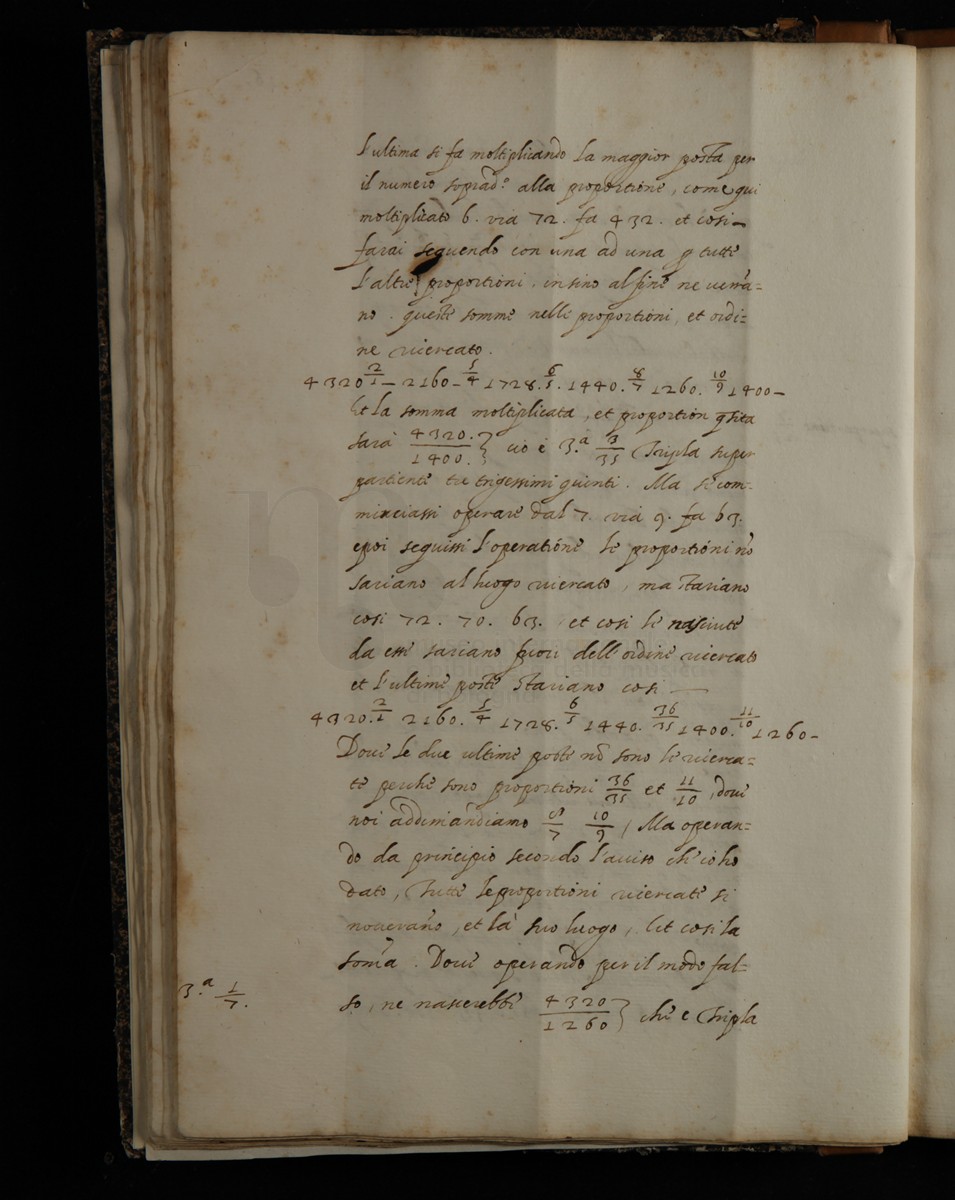 l'ultima si fa moltiplicando la maggior posta per
il numero soprad.º alla proportione, come qui
moltiplicato 6. via 72. fa 432. et cosi
farai seguendo con una ad una p tutte
l'altre proportioni, insino al fine ne verra=
no queste somme nelle proportioni, et ordi=
ne ricercato.
4320 2/1 – 2160 – 5/4 1728. 6/5. 1440. 8/7 1260. 10/9 1400 –
Et la somma moltiplicata, et proportion qsita
sarà 4320./1400. } ciò è 3.ª 3/35 Tripla super
partiente tre trigessimi quinti. Ma se com=
minciassi operare dal 7. via 9. fa 63.
e poi seguissi l'operatione le proportioni nō
sariano al luogo ricercato, ma stariano
cosi 72. 70. 63. et cosi le nasciute
da esse sariano fuori dell'ordine ricercato
et l'ultime poste stariano cosi —
4320. 2/1 2160. 5/4 1728. 6/5 1440. 36/35 1400. 11/10 1260 –
Dove le due ultime poste nō sono le ricerca=
te perche sono proportioni 36/35 et 11/10, dove
noi addimandiamo 8/7 10/9 / Ma operan=
do da principio secondo l'aviso ch'io ho
dato, Tutte le proportioni ricercate si
troverano, et là suo luogo, Et cosi la
soma. Dove operando per il modo fal=
3.ª 1/7.
so, ne nascerebbe 4320/1260 } che e Tripla